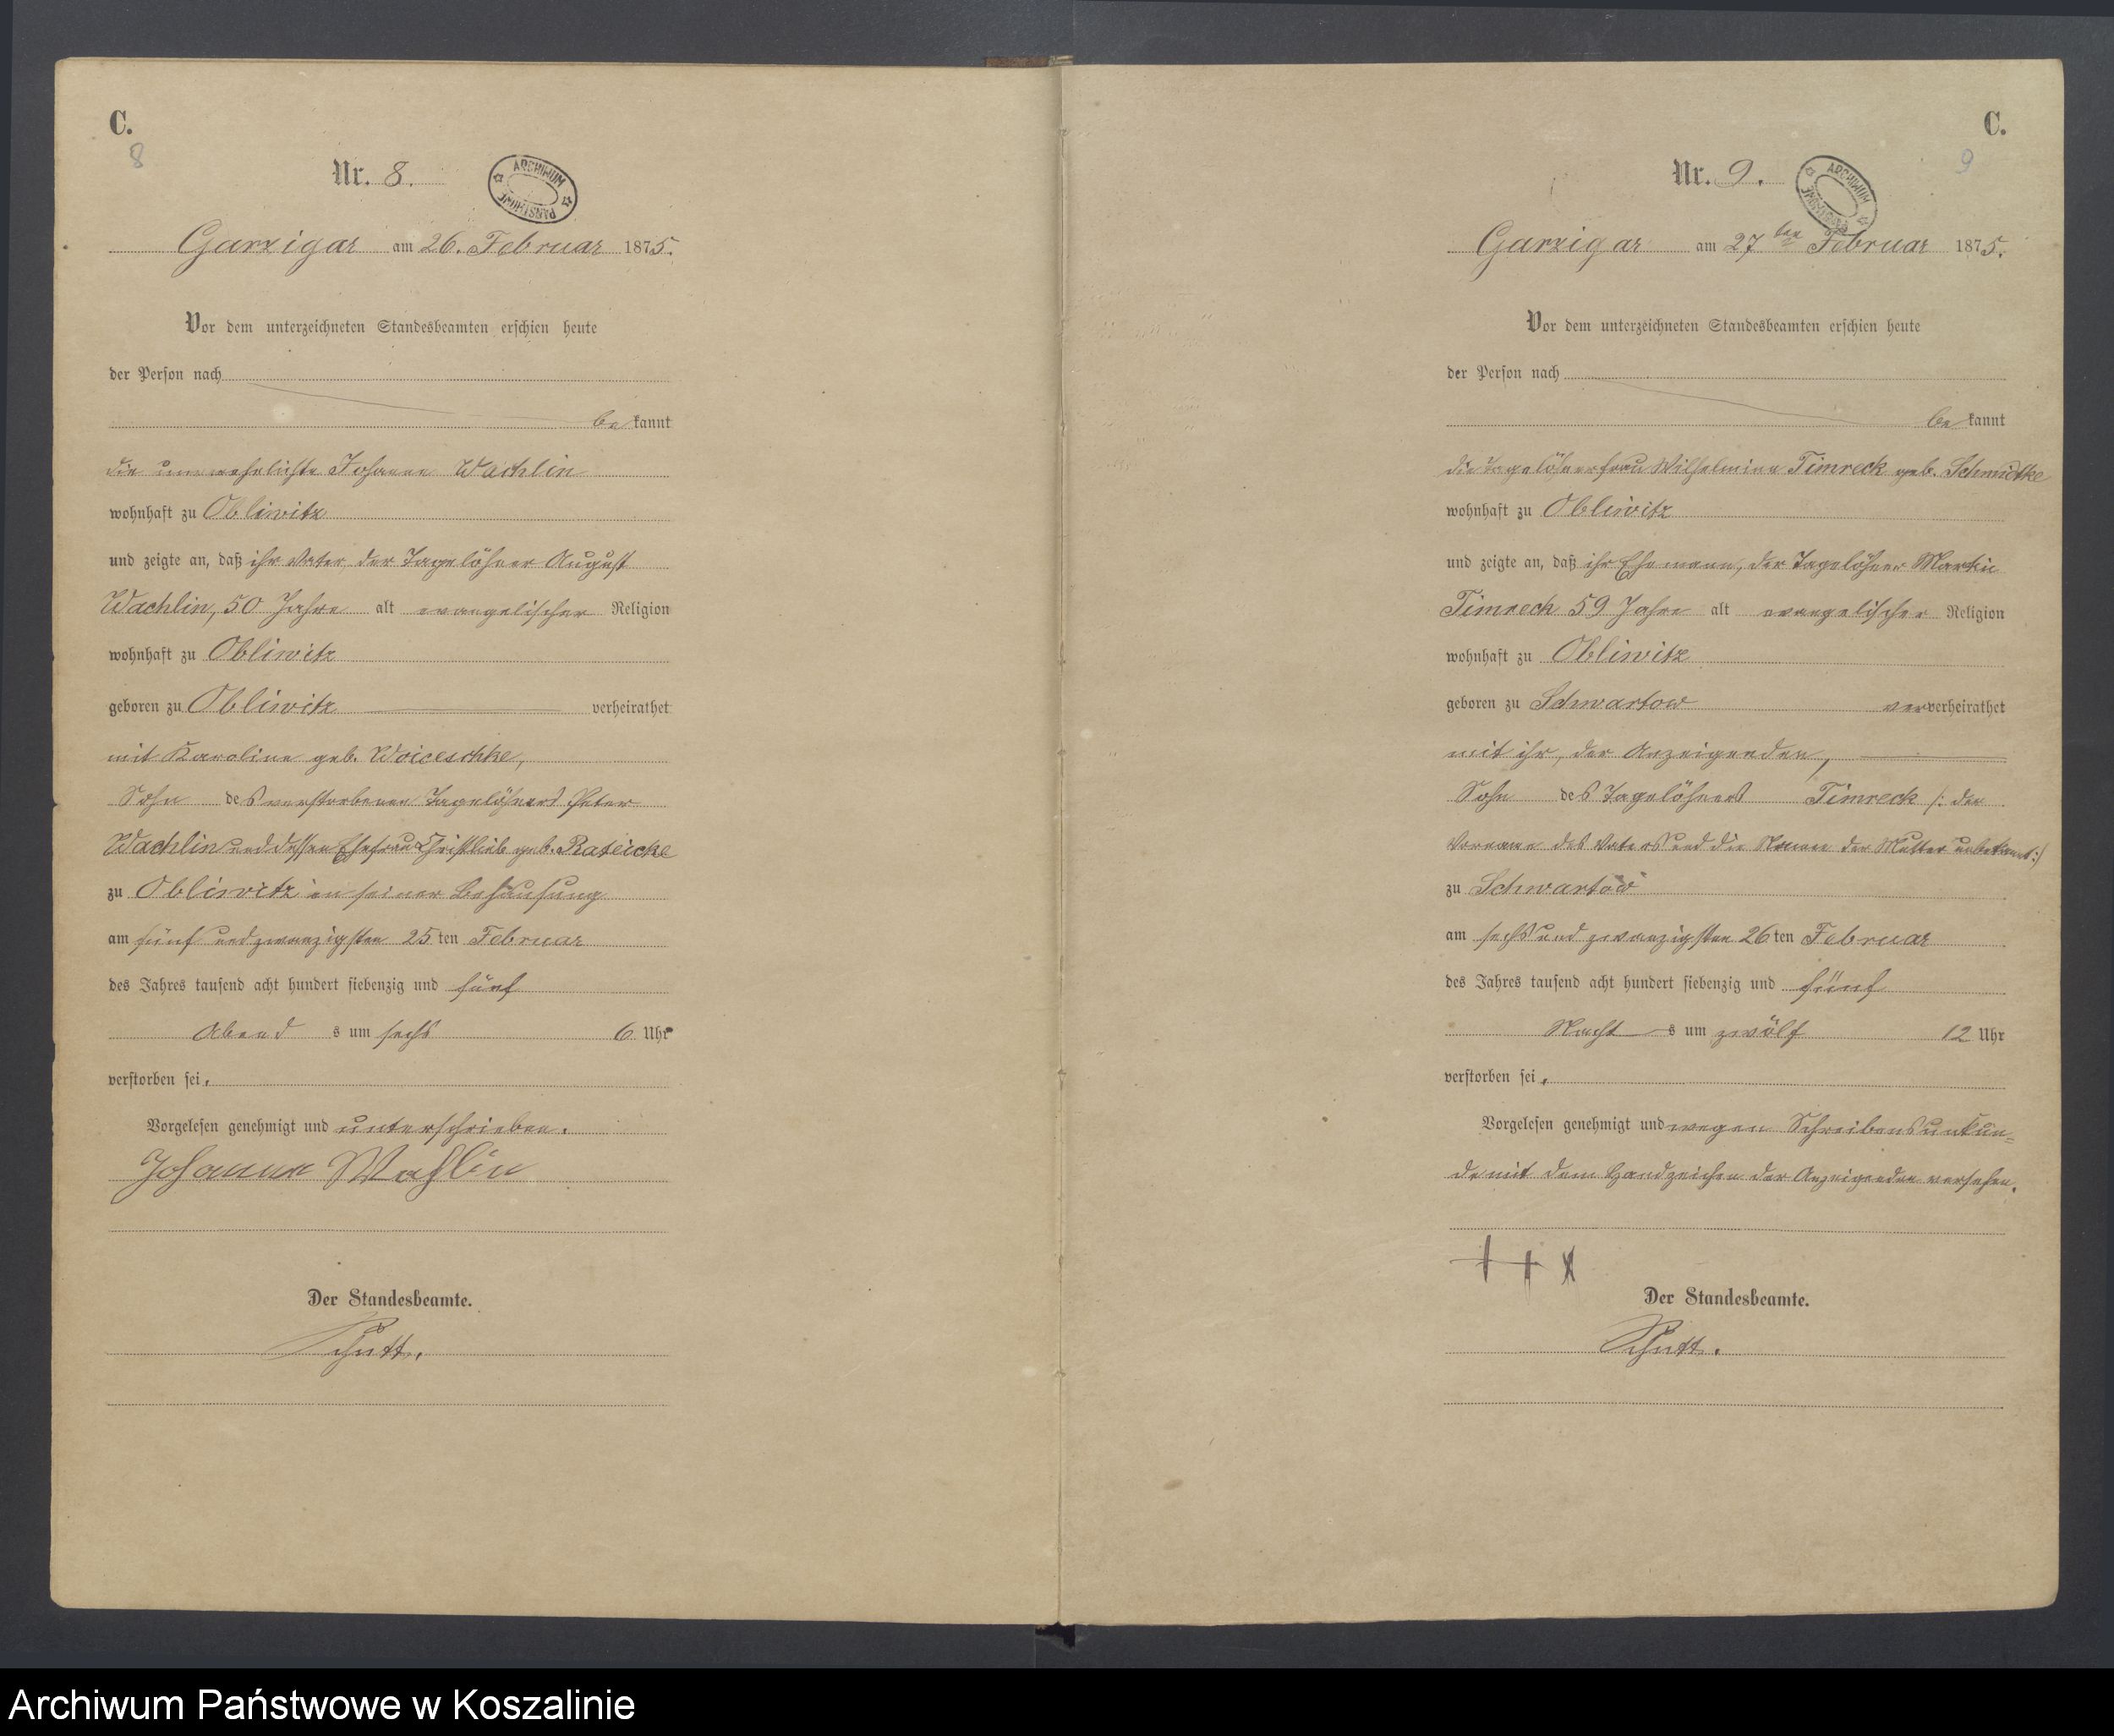 C.
8
Nr. 8.
ARCHIWUM PAŃSTWOWE
Garzigar am 26. Februar 1875.
Vor dem unterzeichneten Standesbeamten erschien heute
der Person nach
be kannt
die unverehelichte Johanne Wachlin
wohnhaft zu Obliwitz
und zeigte an, daß ihr Vater der Tagelöhner August
Wachlin, 50 Jahre alt evangelischer Religion
wohnhaft zu Obliwitz
geboren zu Obliwitz verheirathet
mit Karoline geb. Woiceschke,
Sohn des verstorbenen Tagelöhners Peter
Wachlin und dessen Ehefrau Christlieb geb. Rateicke
zu Obliwitz in seiner Behausung
am fünf und zwanzigsten 25 ten Februar
des Jahres tausend acht hundert siebenzig und fünf
Abend s um sechs 6 Uhr
verstorben sei.
Vorgelesen genehmigt und unterschrieben.
Johanne Wachlin
Der Standesbeamte.
Schutt.
C.
9
Nr. 9.
ARCHIWUM PAŃSTWOWE
Garzigar am 27 ten Februar 1875.
Vor dem unterzeichneten Standesbeamten erschien heute
der Person nach
be kannt
die Tagelöhnerfrau Wilhelmine Timreck geb. Schmidtke
wohnhaft zu Obliwitz
und zeigte an, daß ihr Ehemann, der Tagelöhner Martin
Timreck 59 Jahre alt evangelischer Religion
wohnhaft zu Obliwitz
geboren zu Schwartow ver verheirathet
mit ihr, der Anzeigenden,
Sohn des Tagelöhners Timreck /: der
Vorname des Vaters und die Namen der Mutter unbekannt :/
zu Schwartow
am sechs und zwanzigsten 26 ten Februar
des Jahres tausend acht hundert siebenzig und fünf
Nacht s um zwölf 12 Uhr
verstorben sei.
Vorgelesen genehmigt und wegen Schreibensunkun=
de mit dem Handzeichen der Anzeigenden versehen.
+ + +
Der Standesbeamte.
Schutt.
Archiwum Państwowe w Koszalinie